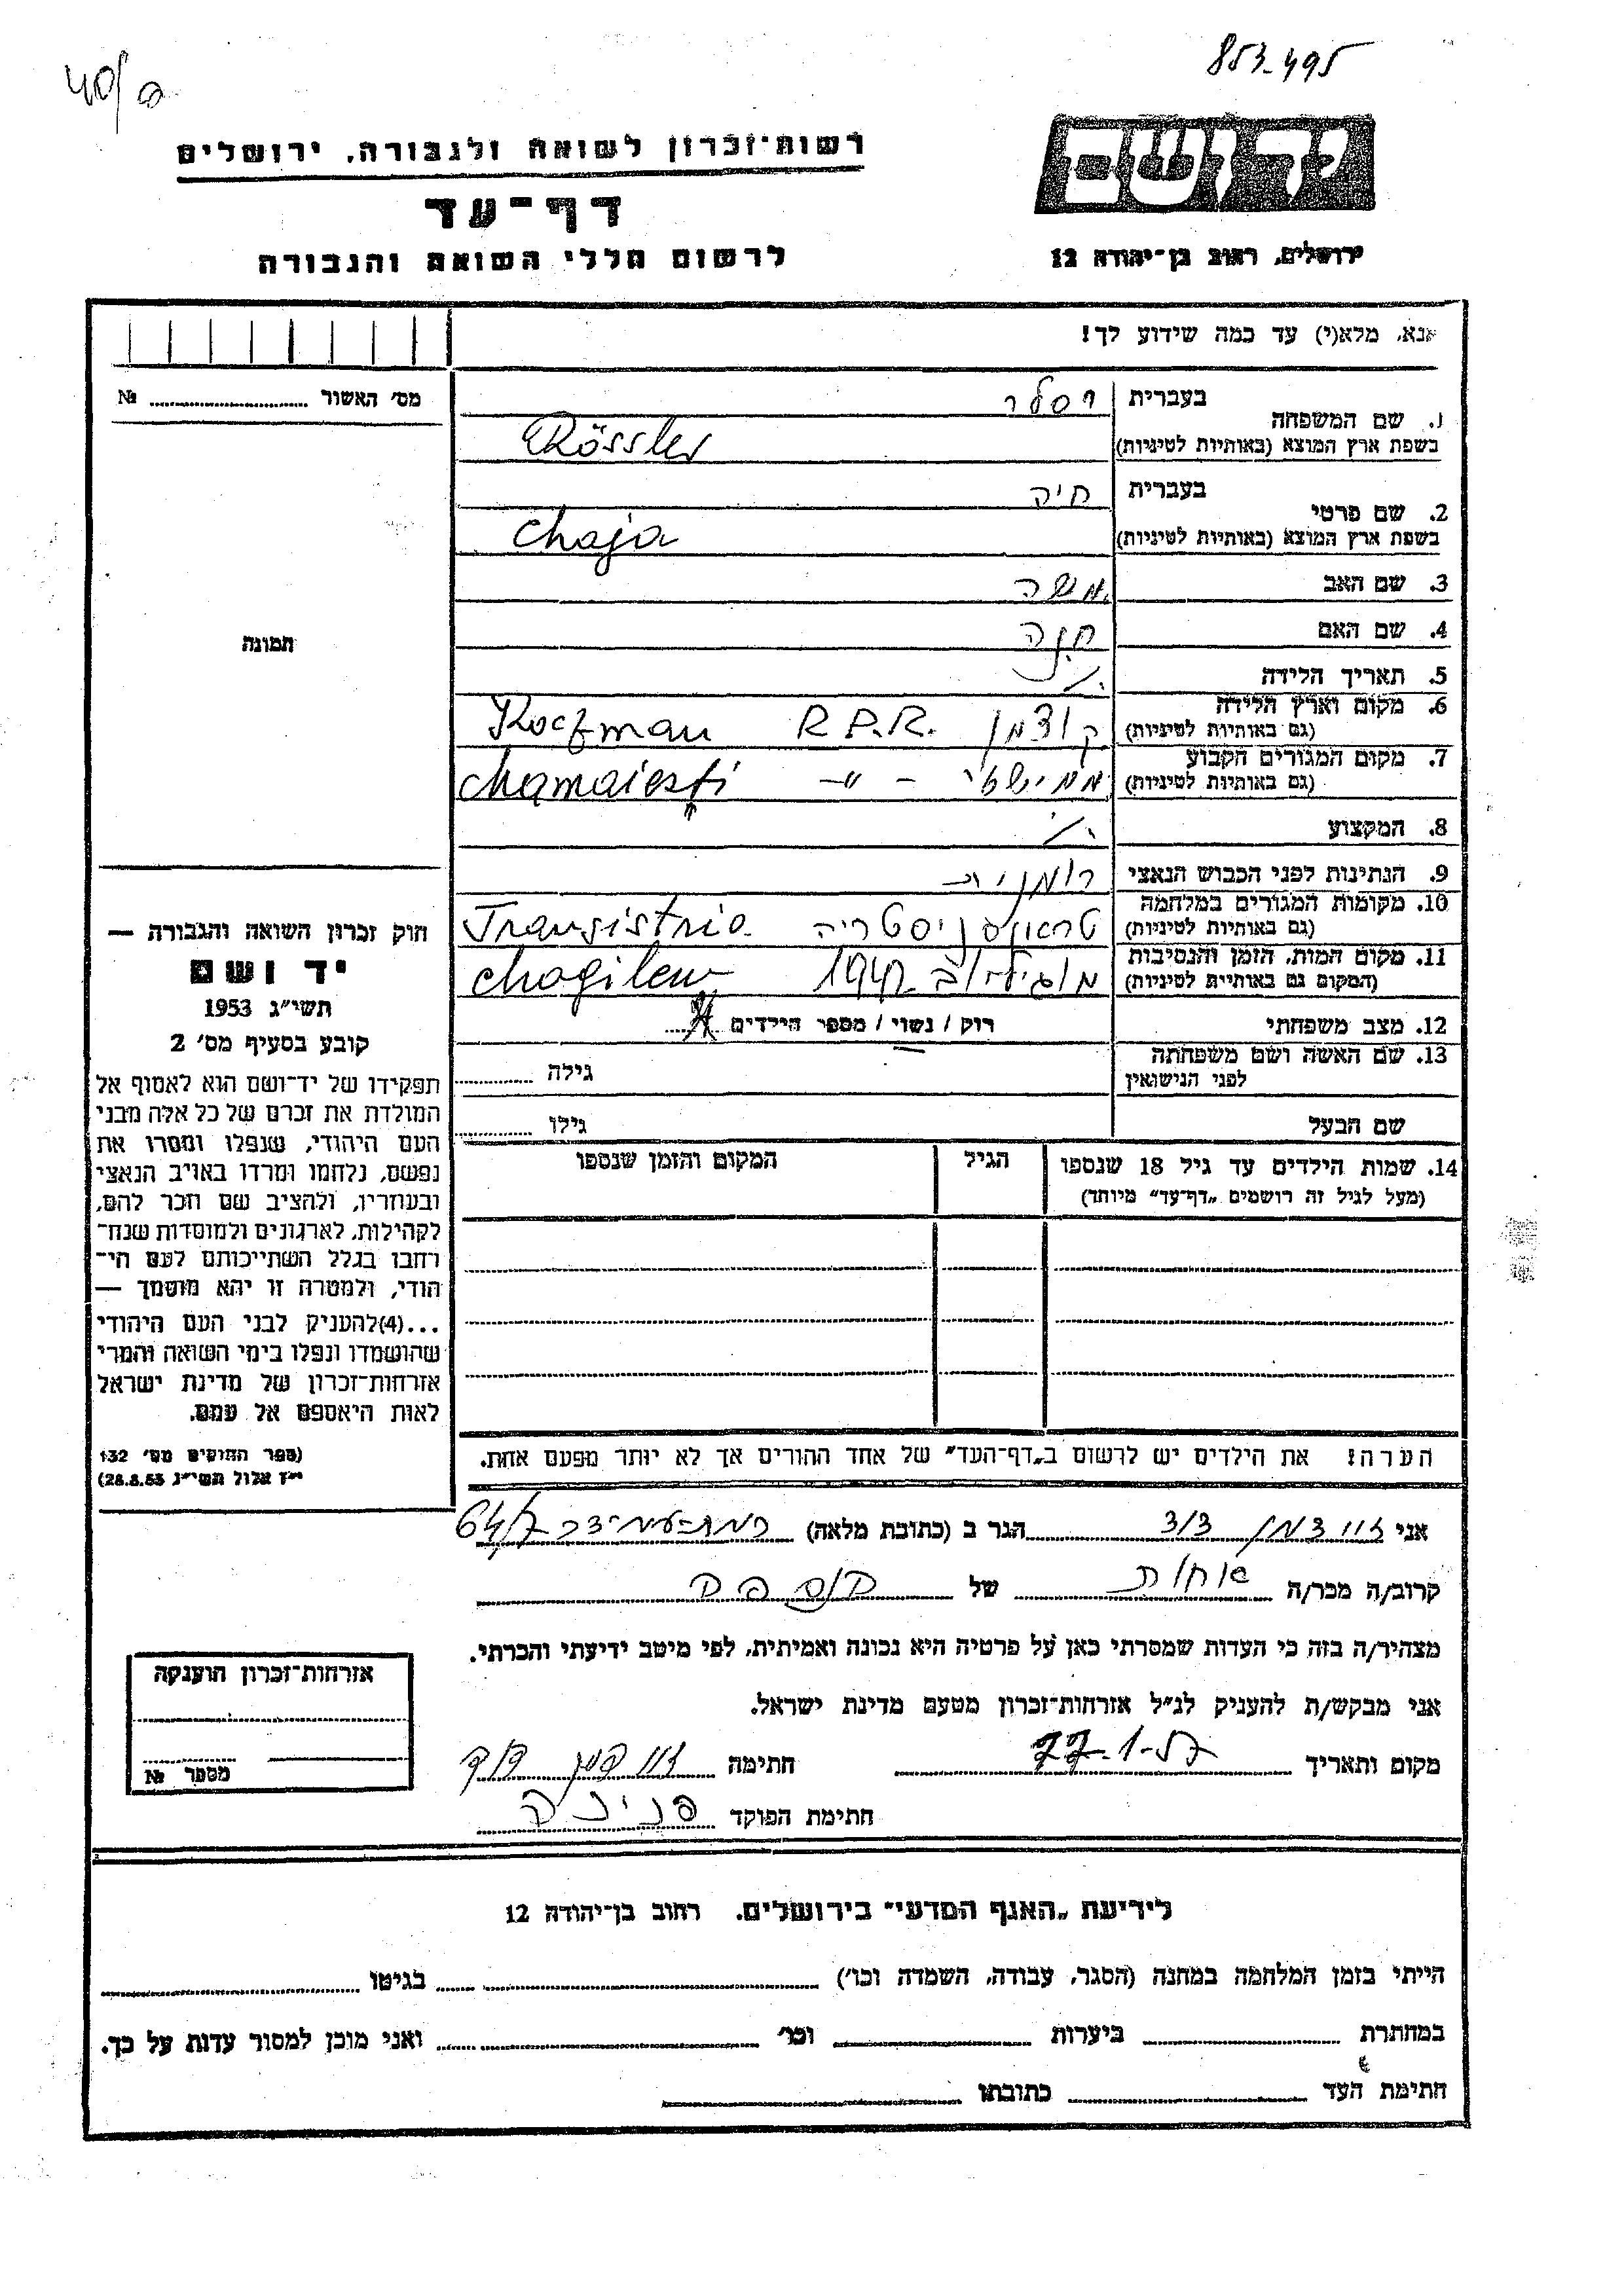 853-495
רשות־זכרון לשואה ולגבורה, ירושלים
דף־עד
לרשום חללי השואה והגבורה
יד ושם
ירושלים, רחוב בן־יהודה 12
אנא, מלא(י) עד כמה שידוע לך!
מס׳ האשור № 
1. שם המשפחה
בעברית רסלר
בשפת ארץ המוצא (באותיות לטיניות) Rössler
2. שם פרטי
בעברית חיה
בשפת ארץ המוצא (באותיות לטיניות) Chaja
3. שם האב משה
4. שם האם חנה
5. תאריך הלידה
6. מקום וארץ הלידה
(גם באותיות לטיניות) קוצמן R.P.R. Koczman
7. מקום המגורים הקבוע
(גם באותיות לטיניות) ממישטי - " - Mamaiesti
8. המקצוע
9. הנתינות לפני הכבוש הנאצי רומנית
10. מקומות המגורים במלחמה
(גם באותיות לטיניות) טראנסניסטריה Transistria
11. מקום המות, הזמן והנסיבות
(המקום גם באותיות לטיניות) מוגילוב 1942 Mogilew
12. מצב משפחתי רוק / נשוי / מספר הילדים
13. שם האשה ושם משפחתה
לפני הנישואין גילה
שם הבעל גילו
14. שמות הילדים עד גיל 18 שנספו
(מעל לגיל זה רושמים „דף־עד״ מיוחד)
הגיל
המקום והזמן שנספו
הערה! את הילדים יש לרשום ב„דף־העד״ של אחד ההורים אך לא יותר מפעם אחת.
תמונה
חוק זכרון השואה והגבורה —
יד ושם
תשי״ג 1953
קובע בסעיף מס׳ 2
תפקידו של יד־ושם הוא לאסוף אל
המולדת את זכרם של כל אלה מבני
העם היהודי, שנפלו ומסרו את
נפשם, נלחמו ומרדו באויב הנאצי
ובעוזריו, ולהציב שם וזכר להם,
לקהילות, לארגונים ולמוסדות שנח־
רבו בגלל השתייכותם לעם הי־
הודי, ולמטרה זו יהא מוסמך —
...(4)להעניק לבני העם היהודי
שהושמדו ונפלו בימי השואה והמרי
אזרחות־זכרון של מדינת ישראל
לאות היאספם אל עמם.
(ספר החוקים מס׳ 132
י״ז אלול תשי״ג 28.8.53)
אני הגר ב (כתובת מלאה) רמת-עמידר
קרוב/ה מכר/ה אחות של
מצהיר/ה בזה כי העדות שמסרתי כאן על פרטיה היא נכונה ואמיתית, לפי מיטב ידיעתי והכרתי.
אני מבקש/ת להעניק לנ״ל אזרחות־זכרון מטעם מדינת ישראל.
מקום ותאריך 22-1-57 חתימה
חתימת הפוקד פנינה
אזרחות־זכרון הוענקה
מספר №
לידיעת „האגף המדעי״ בירושלים. רחוב בן־יהודה 12
הייתי בזמן המלחמה במחנה (הסגר, עבודה, השמדה וכו׳) בגיטו
במחתרת ביערות וכו׳ ואני מוכן למסור עדות על כך.
חתימת העד כתובתו